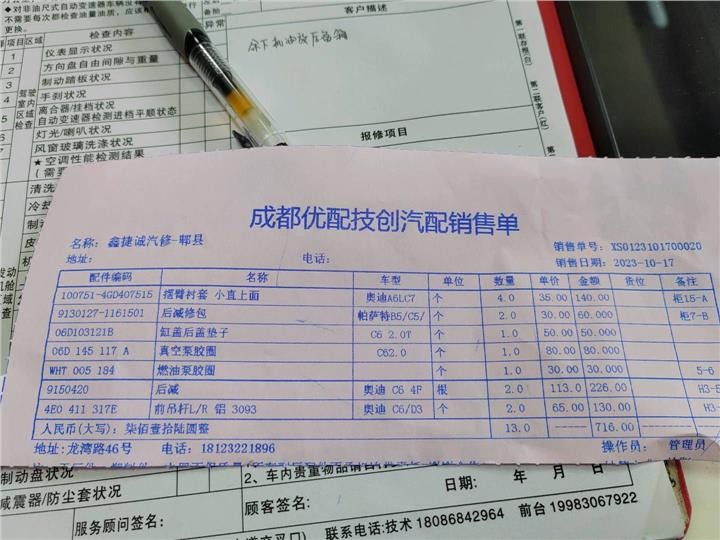 ◆对非油尺式自动变速器车辆没有
不需要每次都检查油量油质，应该
更换。
异常
客户描述
项目
区域
检查内容
余下机油放后备箱
第一联存根(白)
第二联客户(红)
1 仪表显示状况
2 方向盘自由间隙与重量
3 制动踏板状况
4 手刹状况
5 离合器/挂档状况
自动变速器检测进档平顺状态
6 灯光/喇叭状况
7 风窗玻璃洗涤状况
8 ★空调性能检测结果
驾驶室内区域检查
报修项目
清洗
冷却
成都优配技创汽配销售单
名称: 鑫捷诚汽修-郫县
销售单号: XS0123101700020
地址:
电话:
销售日期: 2023-10-17
配件编码 名称 车型 单位 数量 单价 金额 货位 备注
100751-4GD407515 摆臂衬套 小直上面 奥迪A6LC7 个 4.0 35.00 140.00 柜15-A
9130127-1161501 后减修包 帕萨特B5/C5/ 个 2.0 30.00 60.000 柜7-B
06D103121B 缸盖后盖垫子 C6 2.0T 个 1.0 50.00 50.000
06D 145 117 A 真空泵胶圈 C62.0 个 1.0 80.00 80.000
WHT 005 184 燃油泵胶圈 个 1.0 30.00 30.000 5-6
9150420 后减 奥迪 C6 4F 根 2.0 113.0 226.00 H3-5
4E0 411 317E 前吊杆L/R 铝 3093 奥迪 C6/D3 个 2.0 65.00 130.00 H3-
人民币(大写): 柒佰壹拾陆圆整 13.0 ----- 716.00 -----
地址:龙湾路46号 电话: 18123221896 操作员: 管理员
制动盘状况
2、车内贵重物品请自
日期: 年 月 日
减震器/防尘套状况
顾客签名: 年 月
服务顾问签名:
联系电话:技术 18086842964 前台 19983067922